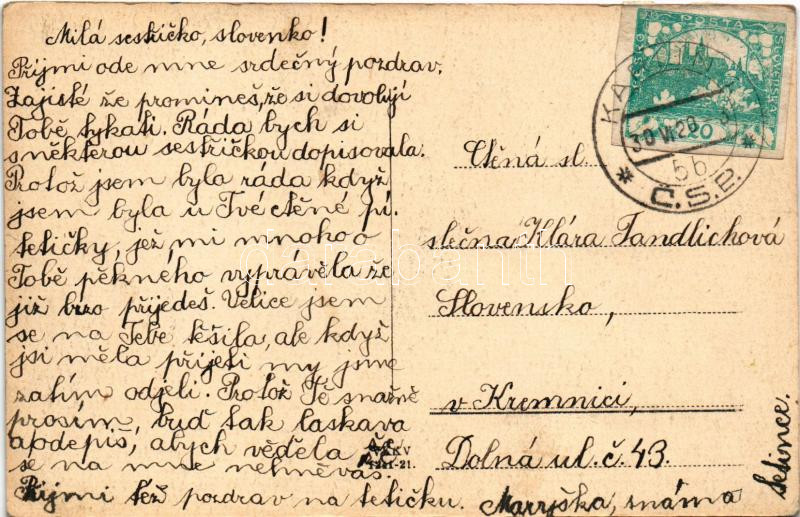 Milá sestřičko, slovenko!
Přijmi ode mne srdečný pozdrav.
Zajisté že promineš, že si dovoluji
Tobě tykati. Ráda bych si
s některou sestřičkou dopisovala.
Protož jsem byla ráda když
jsem byla u Tvé ctěné pí.
tetičky, jež mi mnoho o
Tobě pěkného vyprávěla že
již brzo přijedeš. Velice jsem
se na Tebe těšila, ale když
jsi měla přijeti my jsme
zatím odjeli. Protož Tě snažně
prosím, buď tak laskava
a odepiš, abych věděla že
se na mne nehněváš.
Přijmi též pozdrav na tetičku. Maryška, známa
Setince.
POSTA
ČESKO
SLOVENSKÁ
30.VI.20
5b
* Č.S.P. *
Ctěná sl.
slečna Klára Tandlichová
Slovensko,
v Kremnici,
Dolná ul. č. 43.
1211-21.
darabanth